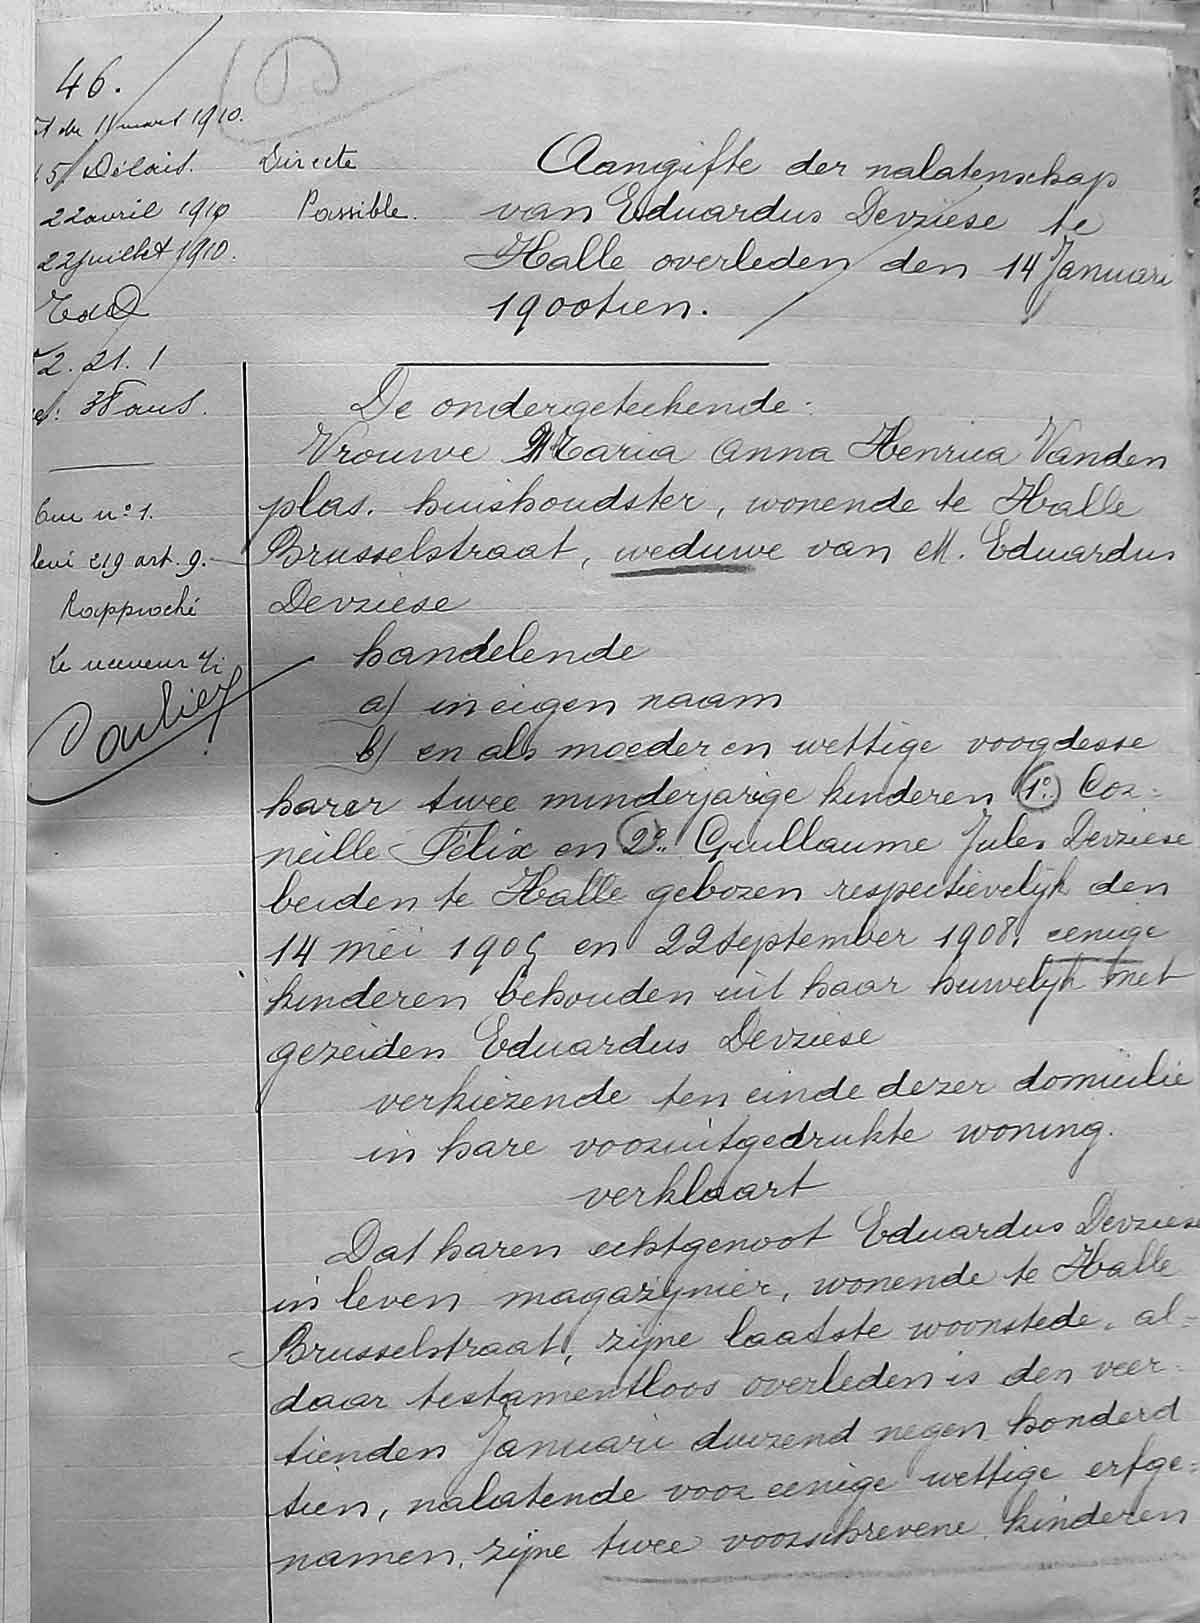 46.
du 11 mart 1910.
Délais.
22 avril 1910
22 juillet 1910.
2. 21. 1
38 ans.
Directe
Passible.
Aangifte der nalatenschap
van Eduardus Devriese te
Halle overleden den 14 Januari
1900tien.
De ondergeteekende:
Vrouwe Maria Anna Henrica Vanden
plas. huishoudster, wonende te Halle
Brusselstraat, weduwe van M. Eduardus
Devriese
handelende
a) in eigen naam
b) en als moeder en wettige voogdesse
harer twee minderjarige kinderen 1º. Cor=
neille Félix en 2º. Guillaume Jules Devriese
beiden te Halle geboren respectievelijk den
14 mei 190 en 22 september 1908. eenige
kinderen behouden uit haar huwelijk met
gezeiden Eduardus Devriese
verkiezende ten einde dezer domicilie
in hare vooruitgedrukte woning.
verklaart
Dat haren echtgenoot Eduardus Devriese
in leven magazijnier, wonende te Halle
Brusselstraat, zijne laatste woonstede, al=
daar testamentloos overleden is den veer=
tienden Januari duizend negen honderd
tien, nalatende voor eenige wettige erfge=
namen, zijne twee voorschrevene kinderen
nº 1.
219 art. 9.
Rapproché
Le receveur